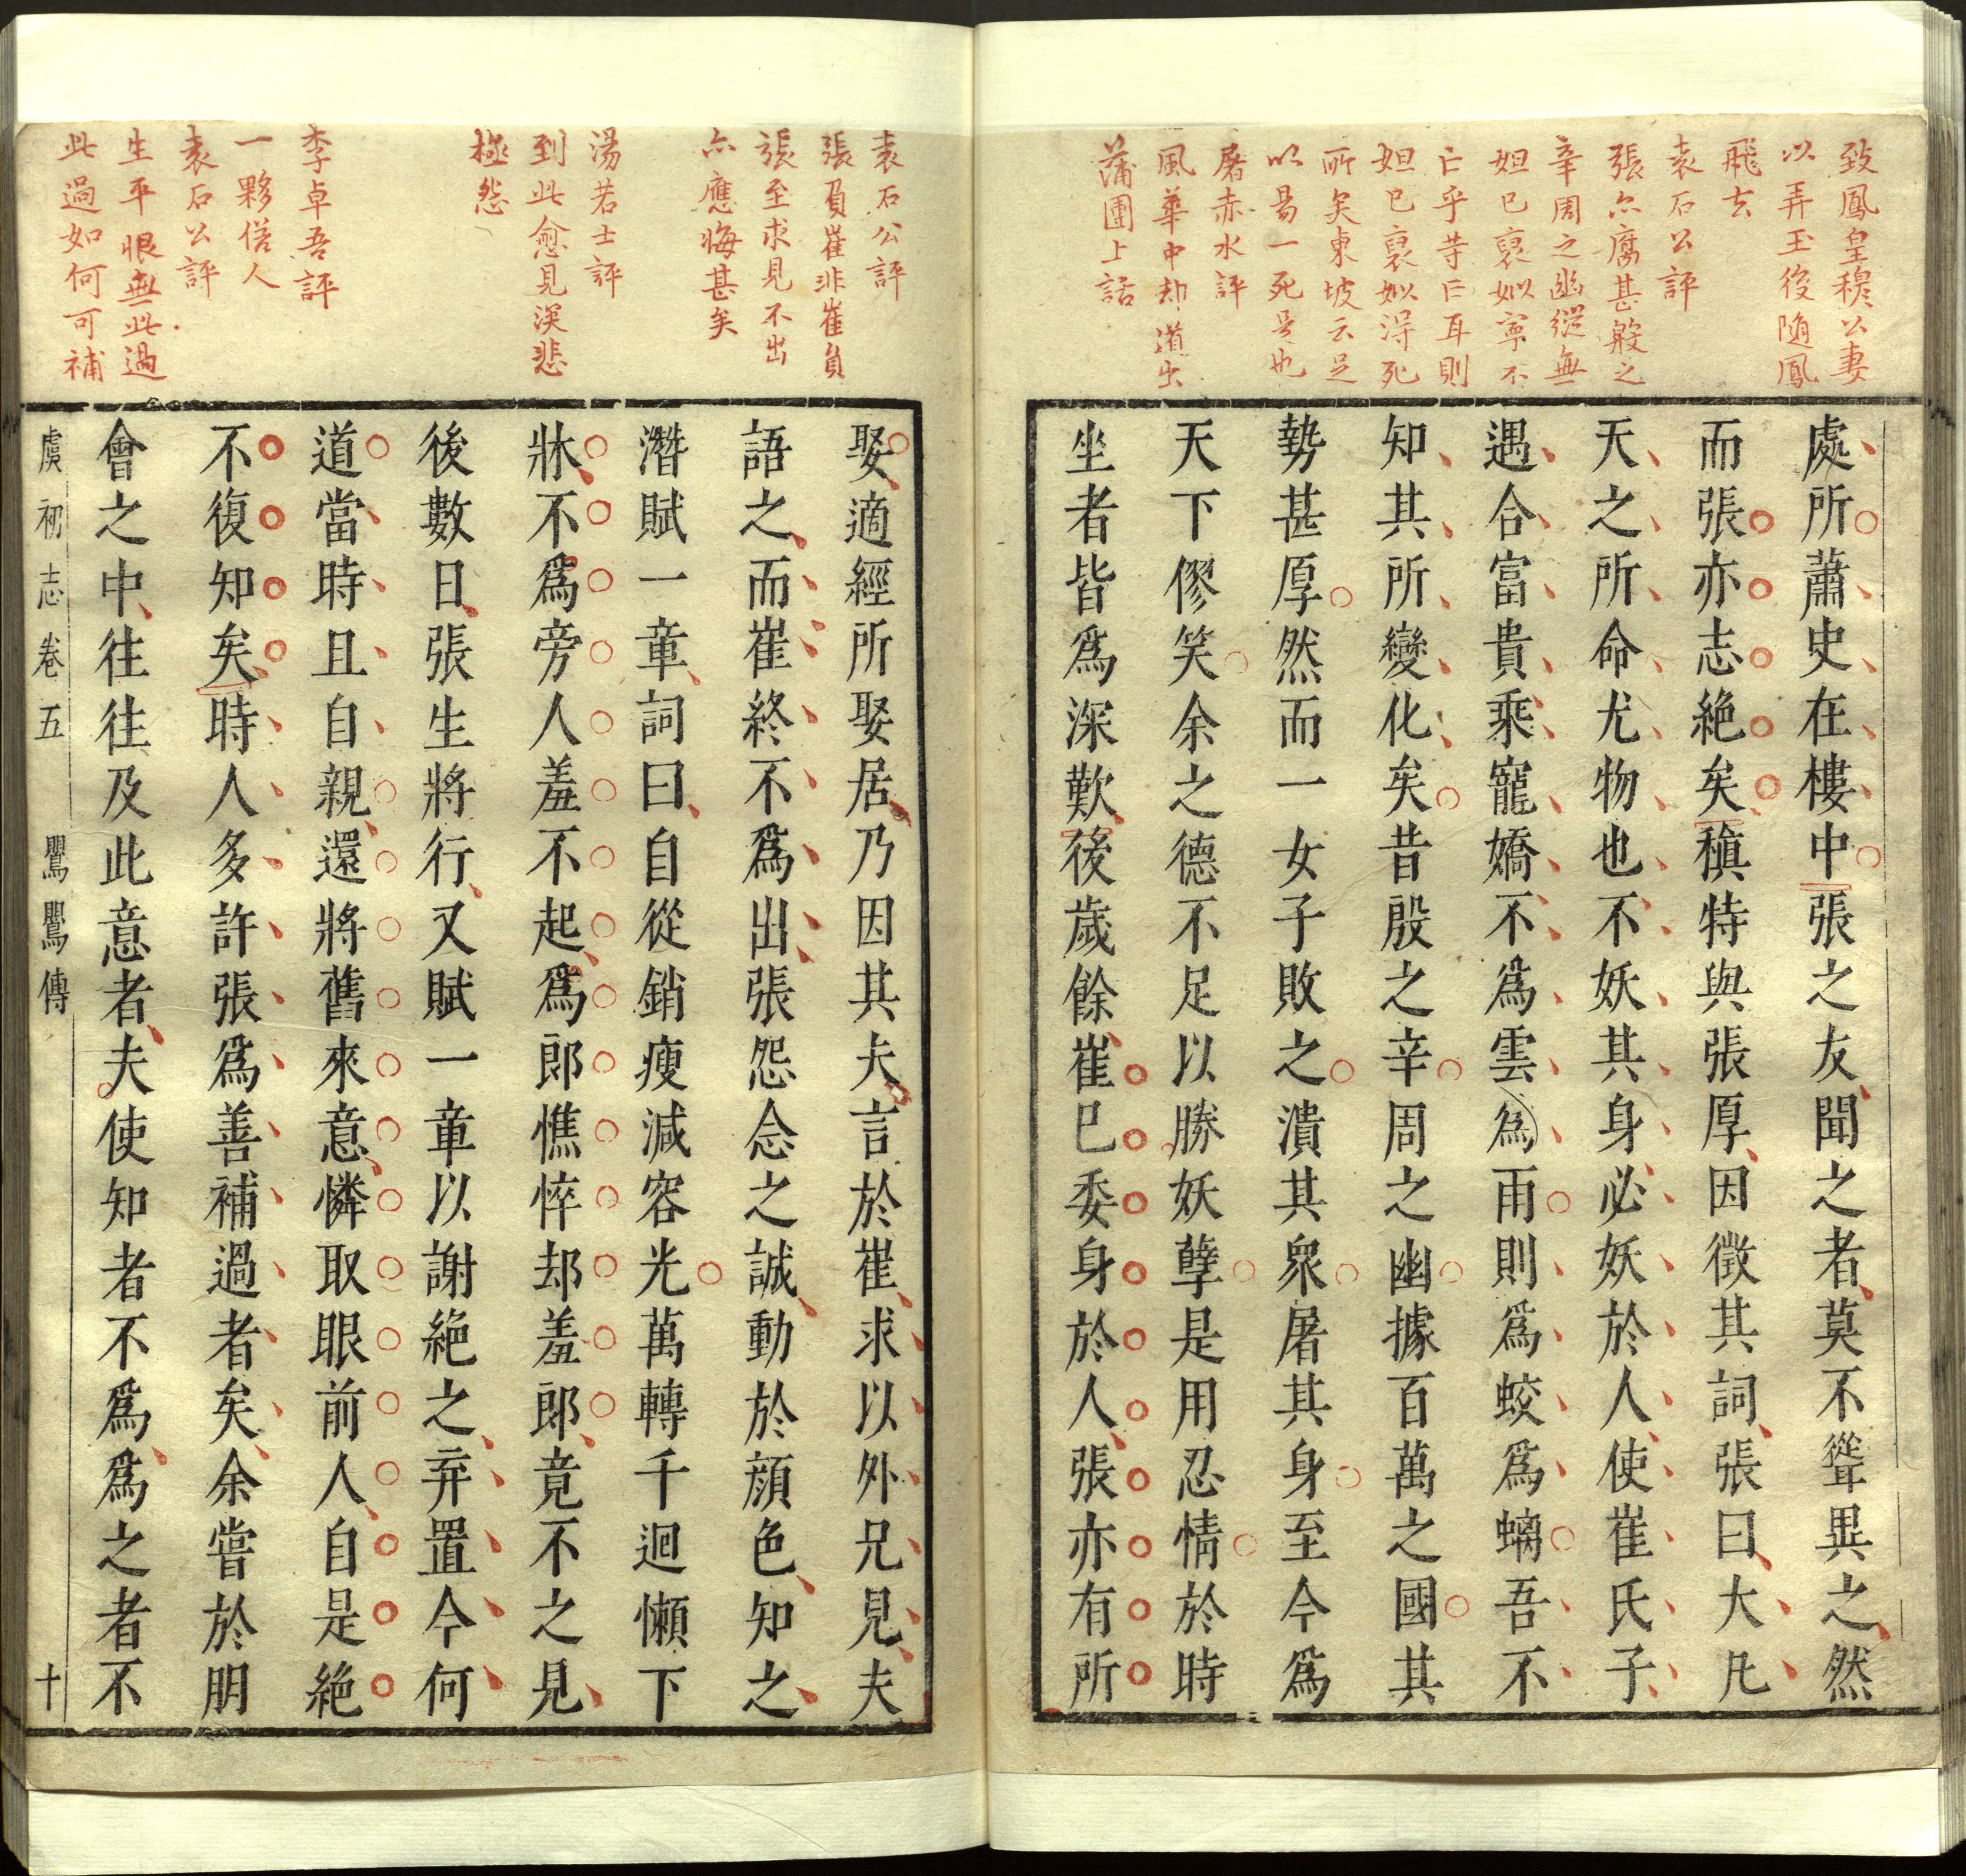 致鳳皇穆公妻
以弄玉後隨鳳
飛去
袁石公評
張亦腐甚殷之
辛周之幽縱無
妲已褒姒寧不
亡乎等亡耳則
妲已褒姒浔死
所矣東坡云足
以易一死是也
屠赤水評
風華中却道出
蒲團上話
處所蕭史在樓中張之友聞之者莫不聳異之然
而張亦志絶矣稹特與張厚因徵其詞張曰大凡
天之所命尤物也不妖其身必妖於人使崔氏子
遇合富貴乘寵嬌不為雲為雨則為蛟為螭吾不
知其所變化矣昔殷之辛周之幽據百萬之國其
勢甚厚然而一女子敗之潰其衆屠其身至今為
天下僇笑余之德不足以勝妖孽是用忍情於時
坐者皆為深歎後歲餘崔已委身於人張亦有所
袁石公評
張負崔非崔負
張至求見不出
亦應悔甚矣
湯若士評
到此愈見深悲
極怨
李卓吾評
一夥俗人
袁石公評
生平恨無此過
此過如何可補
娶適經所娶居乃因其夫言於崔求以外兄見夫
語之而崔終不為出張怨念之誠動於顔色知之
潛賦一章詞曰自從銷瘦減容光萬轉千迴懶下
牀不為旁人羞不起為郎憔悴却羞郎竟不之見
後數日張生將行又賦一章以謝絶之弃置今何
道當時且自親還將舊來意憐取眼前人自是絶
不復知矣時人多許張為善補過者矣余嘗於朋
會之中往往及此意者夫使知者不為為之者不
虞初志卷五 鸎鸎傳 十